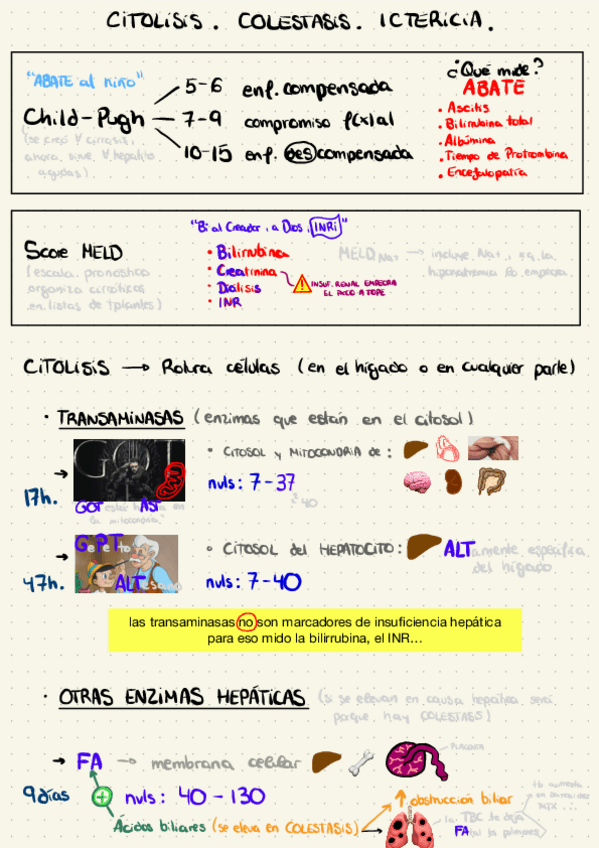 CITOLISIS. COLESTASIS. ICTERICIA.
"ABATE al niño"
Child-Pugh
(se creó ∀ cirrosis,
ahora, sirve, ∀ hepatitis
agudas)
5-6 enf. compensada
7-9 compromiso f(x)al
10-15 enf. DEScompensada
¿Qué mide?
ABATE
• Ascitis
• Bilirrubina total
• Albúmina
• Tiempo de Protrombina
• Encefalopatía
Score MELD
(escala pronóstica
organiza cirróticos
en listas de tplantes)
"Bi al Creador, a Dios, INRi"
• Bilirrubina
• Creatinina
• Diálisis
• INR
INSUF. RENAL EMPEORA
EL PXCO A TOPE
MELD Na+ → incluye Na+, xq la
hiponatremia lo empeora.
CITOLISIS → Rotura células (en el hígado o en cualquier parte)
• TRANSAMINASAS (enzimas que están en el citosol)
→ GOT
17h.
GOT están hasta en AST
la mitocondria"
• CITOSOL y MITOCONDRIA de:
nuls: 7-37
40
→ GPT
Gepetto
47h.
ALTesano
• CITOSOL del HEPATOCITO: ALTamente específica
del hígado.
nuls: 7-40
las transaminasas no son marcadores de insuficiencia hepática
para eso mido la bilirrubina, el INR...
• OTRAS ENZIMAS HEPÁTICAS (si se elevan en causa hepática será
porque hay COLESTASIS)
→ FA → membrana celular
PLACENTA
9 días
nuls: 40-130
Ácidos biliares (se eleva en COLESTASIS)
↑ obstrucción biliar
la TBC te deja
FAtal la pulmones